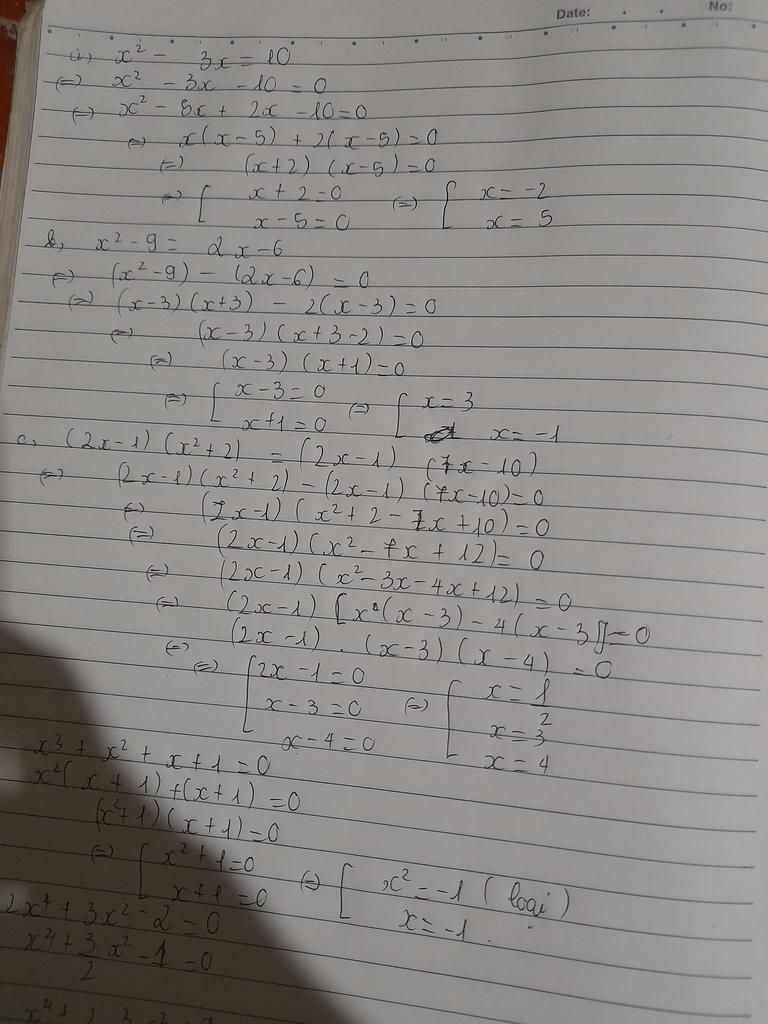 Date: No:
a, x² - 3x = 10
(=) x² - 3x - 10 = 0
(=) x² - 5x + 2x - 10 = 0
(=) x(x-5) + 2(x-5) = 0
(=) (x+2) (x-5) = 0
(=) [ x + 2 = 0 (=) [ x = -2
x - 5 = 0 x = 5
b, x² - 9 = 2x - 6
(=) (x² - 9) - (2x - 6) = 0
(=) (x-3) (x+3) - 2(x-3) = 0
(=) (x-3) (x+3-2) = 0
(=) (x-3) (x+1) = 0
(=) [ x - 3 = 0 (=) [ x = 3
x + 1 = 0 x = -1
c, (2x-1) (x²+2) = (2x-1) (7x-10)
(=) (2x-1) (x² + 2) - (2x-1) (7x-10) = 0
(=) (2x-1) (x² + 2 - 7x + 10) = 0
(=) (2x-1) (x² - 7x + 12) = 0
(=) (2x-1) (x² - 3x - 4x + 12) = 0
(=) (2x-1) [x(x-3) - 4(x-3)] = 0
(=) (2x-1) . (x-3) (x-4) = 0
(=) [ 2x - 1 = 0 (=) [ x = 1/2
x - 3 = 0 x = 3
x - 4 = 0 x = 4
x³ + x² + x + 1 = 0
x²(x+1) + (x+1) = 0
(x²+1) (x+1) = 0
(=) [ x² + 1 = 0 (=) [ x² = -1 (loại)
x + 1 = 0 x = -1.
2x⁴ + 3x² - 2 = 0
x⁴ + 3/2 x² - 1 = 0